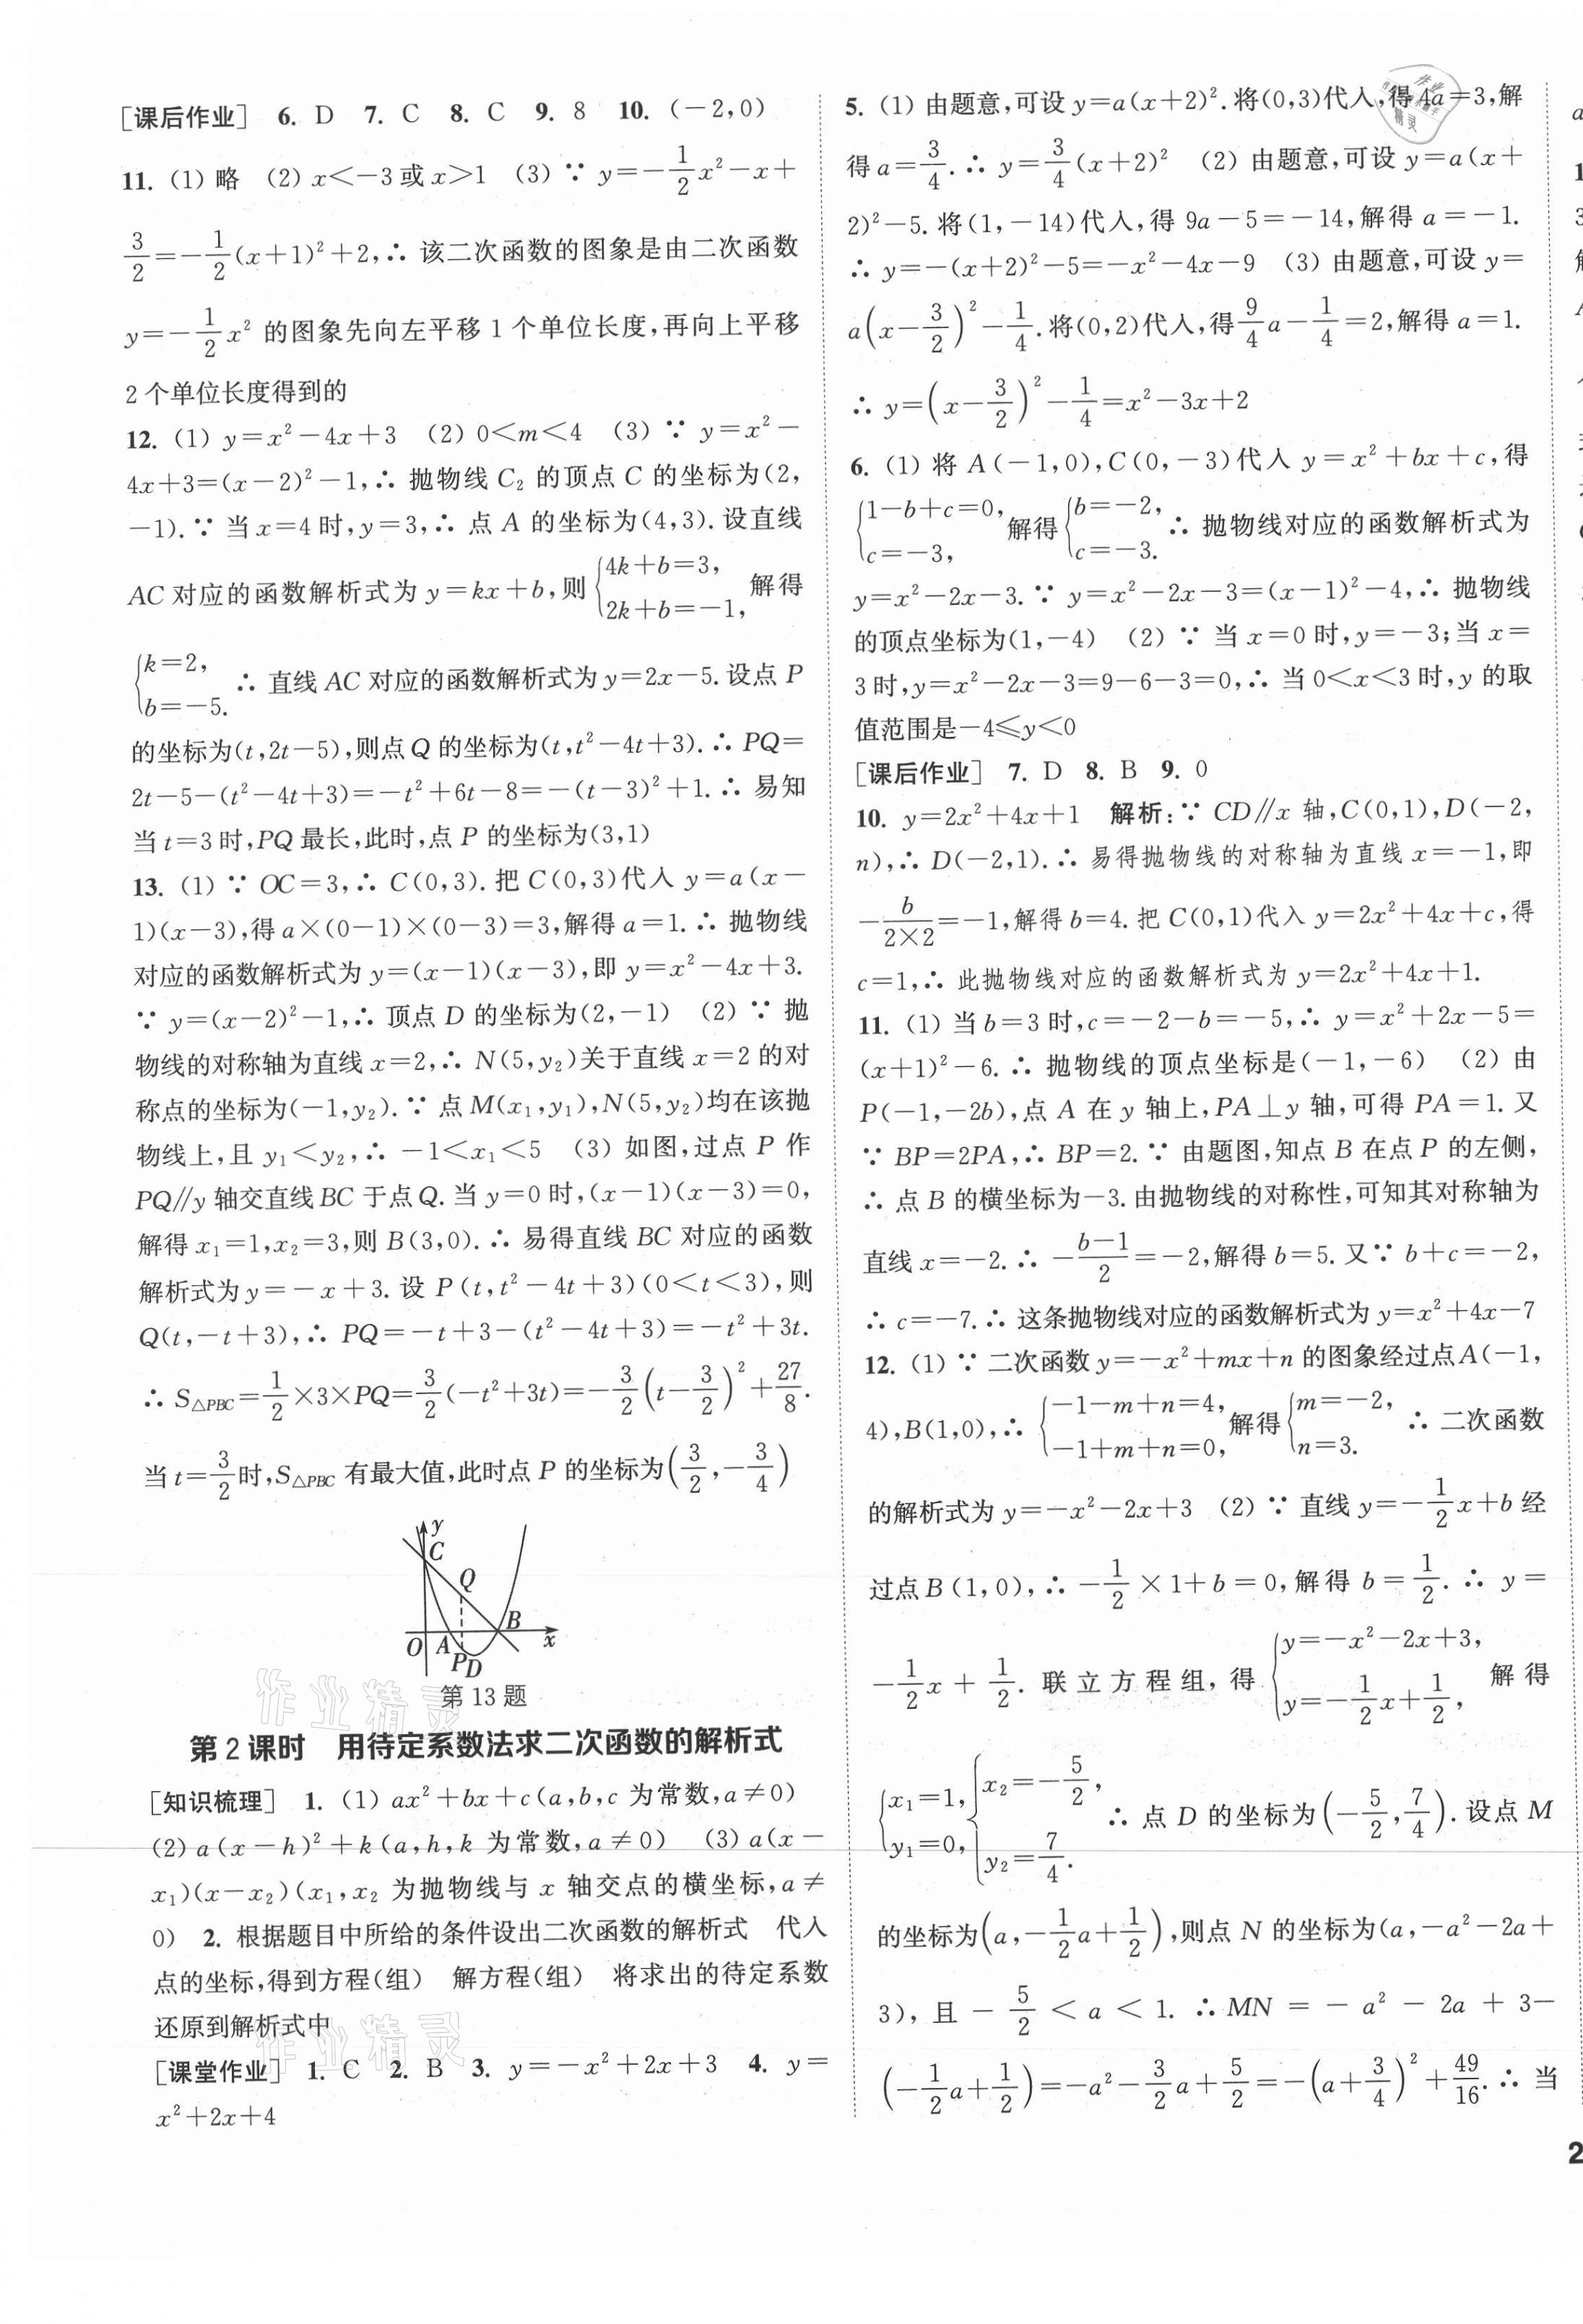 [课后作业] 6. D 7. C 8. C 9. 8 10. (-2,0)
11. (1) 略 (2) x<-3或x>1 (3) ∵ y=-\frac{1}{2}x²-x+
\frac{3}{2}=-\frac{1}{2}(x+1)²+2,∴ 该二次函数的图象是由二次函数
y=-\frac{1}{2}x² 的图象先向左平移 1 个单位长度,再向上平移
2 个单位长度得到的
12. (1) y=x²-4x+3 (2) 0<m<4 (3) ∵ y=x²-
4x+3=(x-2)²-1,∴ 抛物线 C₂ 的顶点 C 的坐标为(2,
-1). ∵ 当 x=4 时,y=3,∴ 点 A 的坐标为(4,3). 设直线
AC 对应的函数解析式为 y=kx+b,则{4k+b=3, 2k+b=-1, 解得
{k=2, b=-5. ∴ 直线 AC 对应的函数解析式为 y=2x-5. 设点 P
的坐标为(t,2t-5),则点 Q 的坐标为(t,t²-4t+3). ∴ PQ=
2t-5-(t²-4t+3)=-t²+6t-8=-(t-3)²+1. ∴ 易知
当 t=3 时,PQ 最长,此时,点 P 的坐标为(3,1)
13. (1) ∵ OC=3,∴ C(0,3). 把 C(0,3)代入 y=a(x-
1)(x-3),得 a×(0-1)×(0-3)=3,解得 a=1. ∴ 抛物线
对应的函数解析式为 y=(x-1)(x-3),即 y=x²-4x+3.
∵ y=(x-2)²-1,∴ 顶点 D 的坐标为(2,-1) (2) ∵ 抛
物线的对称轴为直线 x=2,∴ N(5,y₂)关于直线 x=2 的对
称点的坐标为(-1,y₂). ∵ 点 M(x₁,y₁),N(5,y₂)均在该抛
物线上,且 y₁<y₂,∴ -1<x₁<5 (3) 如图,过点 P 作
PQ∥y 轴交直线 BC 于点 Q. 当 y=0 时,(x-1)(x-3)=0,
解得 x₁=1,x₂=3,则 B(3,0). ∴ 易得直线 BC 对应的函数
解析式为 y=-x+3. 设 P(t,t²-4t+3)(0<t<3),则
Q(t,-t+3),∴ PQ=-t+3-(t²-4t+3)=-t²+3t.
∴ S△PBC=\frac{1}{2}×3×PQ=\frac{3}{2}(-t²+3t)=-\frac{3}{2}(t-\frac{3}{2})²+\frac{27}{8}.
当 t=\frac{3}{2}时,S△PBC 有最大值,此时点 P 的坐标为(\frac{3}{2},-\frac{3}{4})
y
C
Q
B
O A x
P D
第 13 题
第 2 课时 用待定系数法求二次函数的解析式
[知识梳理] 1. (1) ax²+bx+c(a,b,c 为常数,a≠0)
(2) a(x-h)²+k(a,h,k 为常数,a≠0) (3) a(x-
x₁)(x-x₂)(x₁,x₂ 为抛物线与 x 轴交点的横坐标,a≠
0) 2. 根据题目中所给的条件设出二次函数的解析式 代入
点的坐标,得到方程(组) 解方程(组) 将求出的待定系数
还原到解析式中
[课堂作业] 1. C 2. B 3. y=-x²+2x+3 4. y=
x²+2x+4
作业精灵
作业精灵
5. (1) 由题意,可设 y=a(x+2)². 将(0,3)代入,得 4a=3,解
得 a=\frac{3}{4}. ∴ y=\frac{3}{4}(x+2)² (2) 由题意,可设 y=a(x+
2)²-5. 将(1,-14)代入,得 9a-5=-14,解得 a=-1.
∴ y=-(x+2)²-5=-x²-4x-9 (3) 由题意,可设 y=
a(x-\frac{3}{2})²-\frac{1}{4}. 将(0,2)代入,得\frac{9}{4}a-\frac{1}{4}=2,解得 a=1.
∴ y=(x-\frac{3}{2})²-\frac{1}{4}=x²-3x+2
6. (1) 将 A(-1,0),C(0,-3)代入 y=x²+bx+c,得
{1-b+c=0, c=-3, 解得{b=-2, c=-3. ∴ 抛物线对应的函数解析式为
y=x²-2x-3. ∵ y=x²-2x-3=(x-1)²-4,∴ 抛物线
的顶点坐标为(1,-4) (2) ∵ 当 x=0 时,y=-3;当 x=
3 时,y=x²-2x-3=9-6-3=0,∴ 当 0<x<3 时,y 的取
值范围是-4≤y<0
[课后作业] 7. D 8. B 9. 0
10. y=2x²+4x+1 解析:∵ CD∥x 轴,C(0,1),D(-2,
n),∴ D(-2,1). ∴ 易得抛物线的对称轴为直线 x=-1,即
-\frac{b}{2×2}=-1,解得 b=4. 把 C(0,1)代入 y=2x²+4x+c,得
c=1,∴ 此抛物线对应的函数解析式为 y=2x²+4x+1.
11. (1) 当 b=3 时,c=-2-b=-5,∴ y=x²+2x-5=
(x+1)²-6. ∴ 抛物线的顶点坐标是(-1,-6) (2) 由
P(-1,-2b),点 A 在 y 轴上,PA⊥y 轴,可得 PA=1. 又
∵ BP=2PA,∴ BP=2. ∵ 由题图,知点 B 在点 P 的左侧,
∴ 点 B 的横坐标为-3. 由抛物线的对称性,可知其对称轴为
直线 x=-2. ∴ -\frac{b-1}{2}=-2,解得 b=5. 又∵ b+c=-2,
∴ c=-7. ∴ 这条抛物线对应的函数解析式为 y=x²+4x-7
12. (1) ∵ 二次函数 y=-x²+mx+n 的图象经过点 A(-1,
4),B(1,0),∴ {-1-m+n=4, -1+m+n=0, 解得{m=-2, n=3. ∴ 二次函数
的解析式为 y=-x²-2x+3 (2) ∵ 直线 y=-\frac{1}{2}x+b 经
过点 B(1,0),∴ -\frac{1}{2}×1+b=0,解得 b=\frac{1}{2}. ∴ y=
-\frac{1}{2}x+\frac{1}{2}. 联立方程组,得{y=-x²-2x+3, y=-\frac{1}{2}x+\frac{1}{2}, 解得
{x₁=1, y₁=0, {x₂=-\frac{5}{2}, y₂=\frac{7}{4}. ∴ 点 D 的坐标为(-\frac{5}{2},\frac{7}{4}). 设点 M
的坐标为(a,-\frac{1}{2}a+\frac{1}{2}),则点 N 的坐标为(a,-a²-2a+
3),且-\frac{5}{2}<a<1. ∴ MN=-a²-2a+3-
(-\frac{1}{2}a+\frac{1}{2})=-a²-\frac{3}{2}a+\frac{5}{2}=-(a+\frac{3}{4})²+\frac{49}{16}. ∴ 当
2